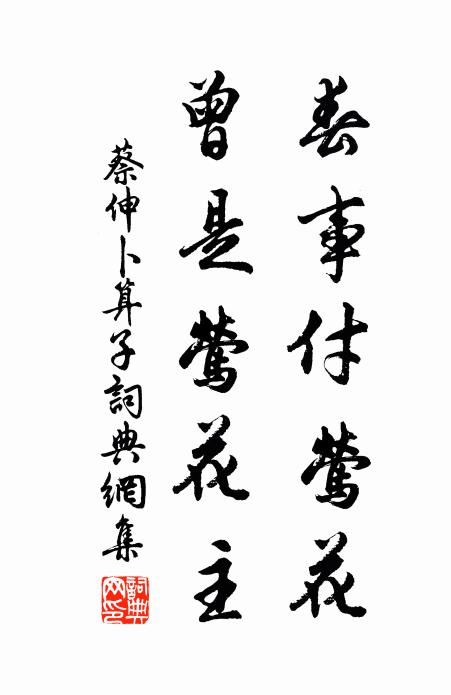 春事付鶯花
曾是鶯花主
蔡伸卜算子詞典網集
詞典網印